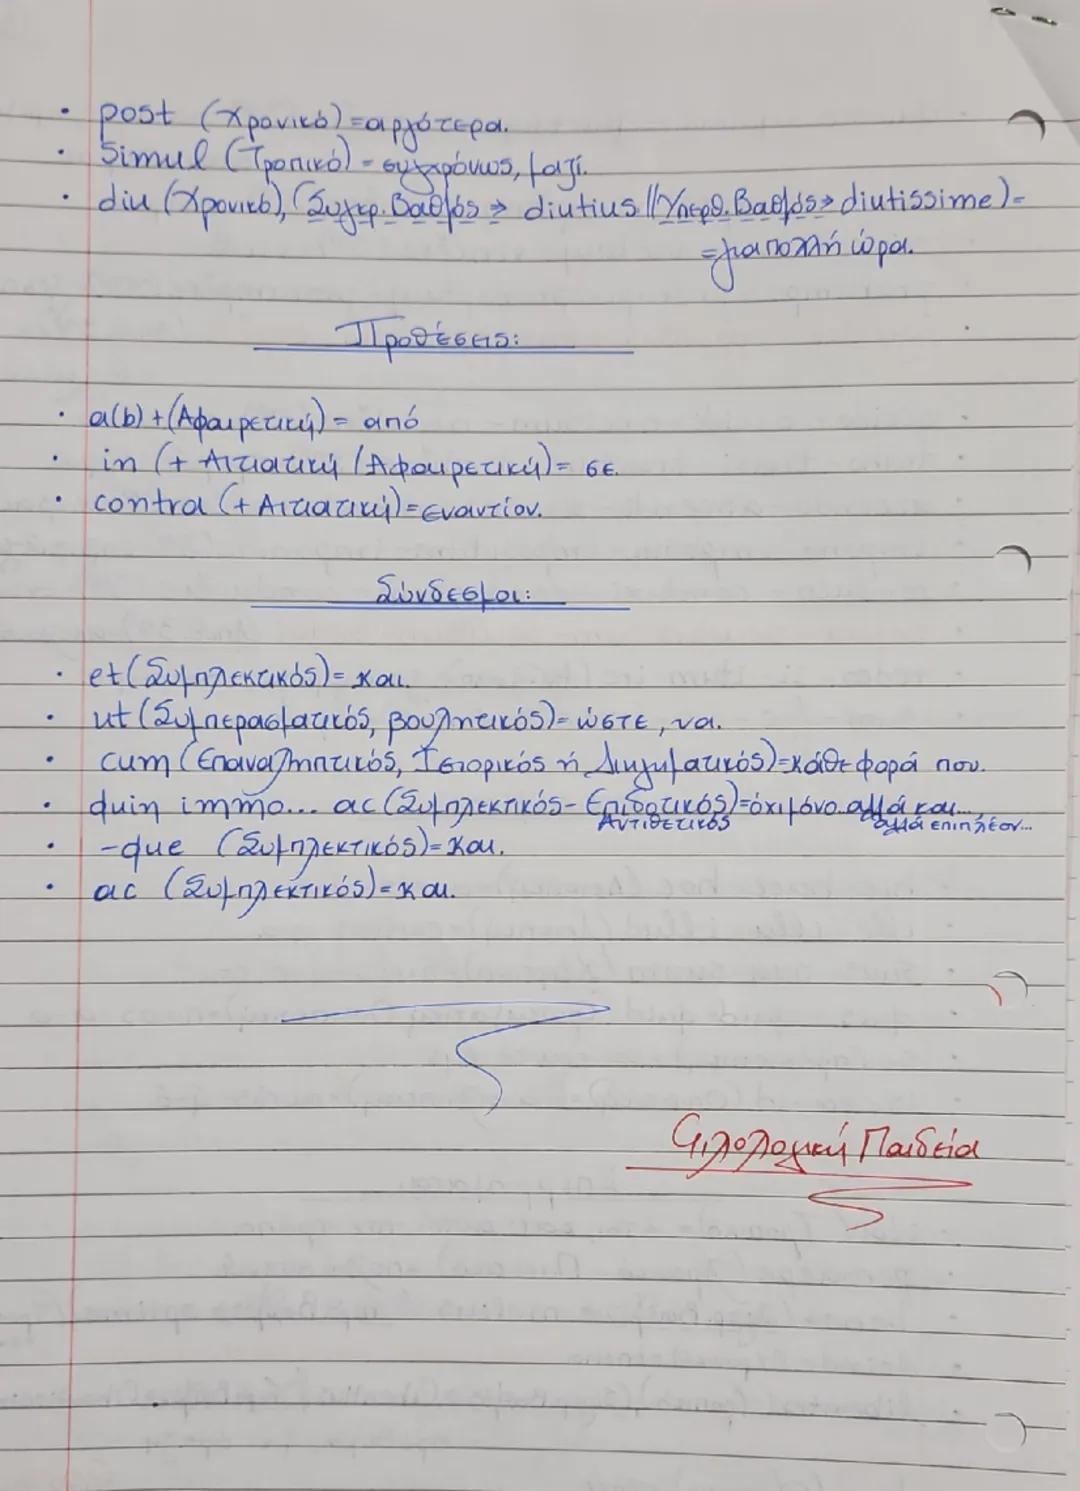 • post (Χρονικό)=αργότερα.
• Simul (Τροπικό) = συγχρόνως, μαζί.
• diu (Χρονικό), (Συγκρ. Βαθμός → diutius // Υπερθ. Βαθμός → diutissime)=
=για πολλή ώρα.
Προθέσεις:
• a(b) + (Αφαιρετική) = από
• in (+ Αιτιατική / Αφαιρετική) = σε.
• contra (+ Αιτιατική) = εναντίον.
Σύνδεσμοι:
• et (Συμπλεκτικός) = και.
• ut (Συμπερασματικός, βουλητικός) = ώστε, να.
• cum (Επαναληπτικός, Ιστορικός ή Διηγηματικός) = κάθε φορά που.
• quin immo... ac (Συμπλεκτικός - Επιδοτικός) = όχι μόνο αλλά και...
Αντιθετικός αλλά επιπλέον...
• -que (Συμπλεκτικός) = και.
• ac (Συμπλεκτικός) = και.
Φιλολογική Παιδεία